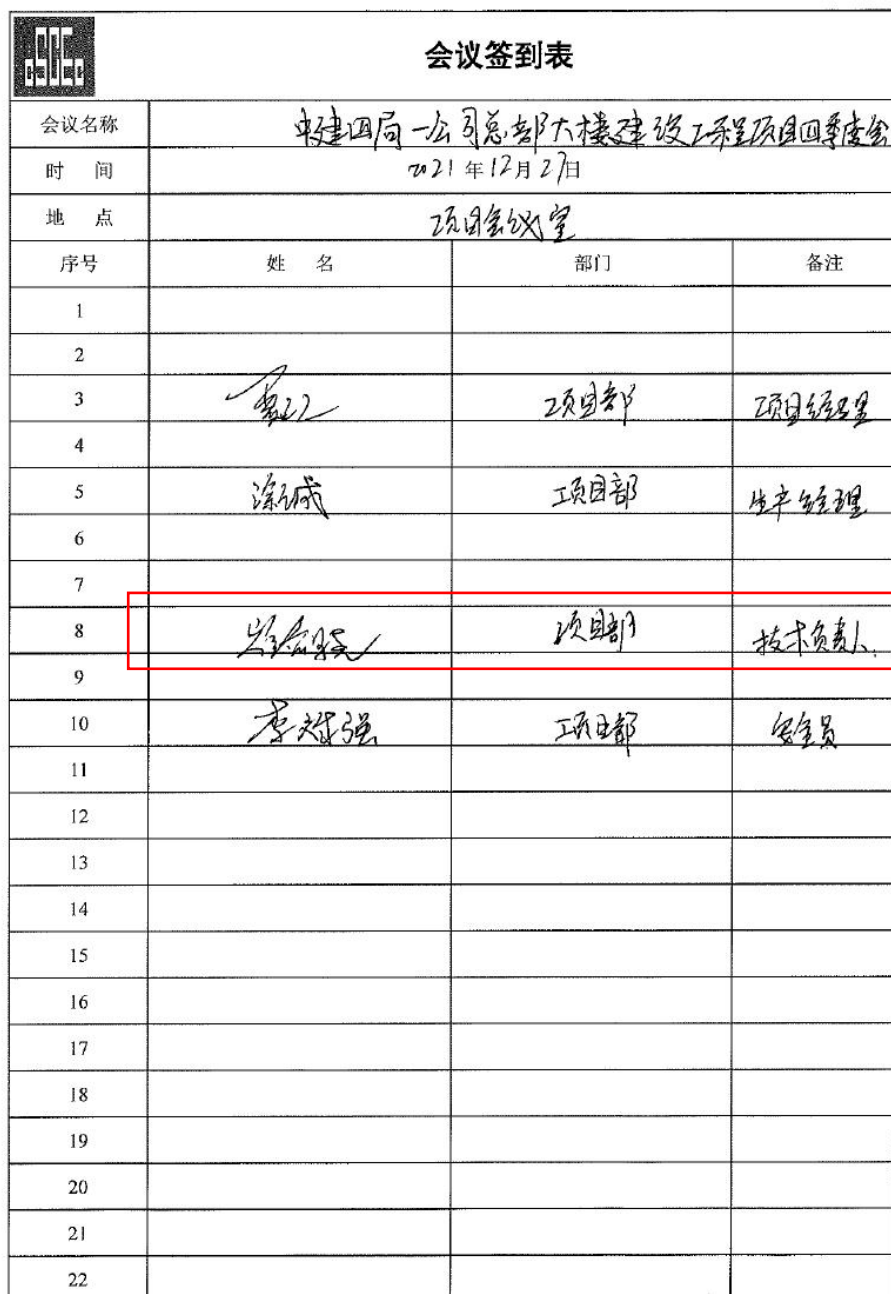 会议签到表
会议名称 中建四局一公司总部大楼建设工程项目四季度会
时 间 2021年12月27日
地 点 项目会议室
序号 姓 名 部门 备注
1
2
3 项目部 项目经理
4
5 涂诚 项目部 生产经理
6
7
8 项目部 技术负责人
9
10 李斌强 项目部 安全员
11
12
13
14
15
16
17
18
19
20
21
22